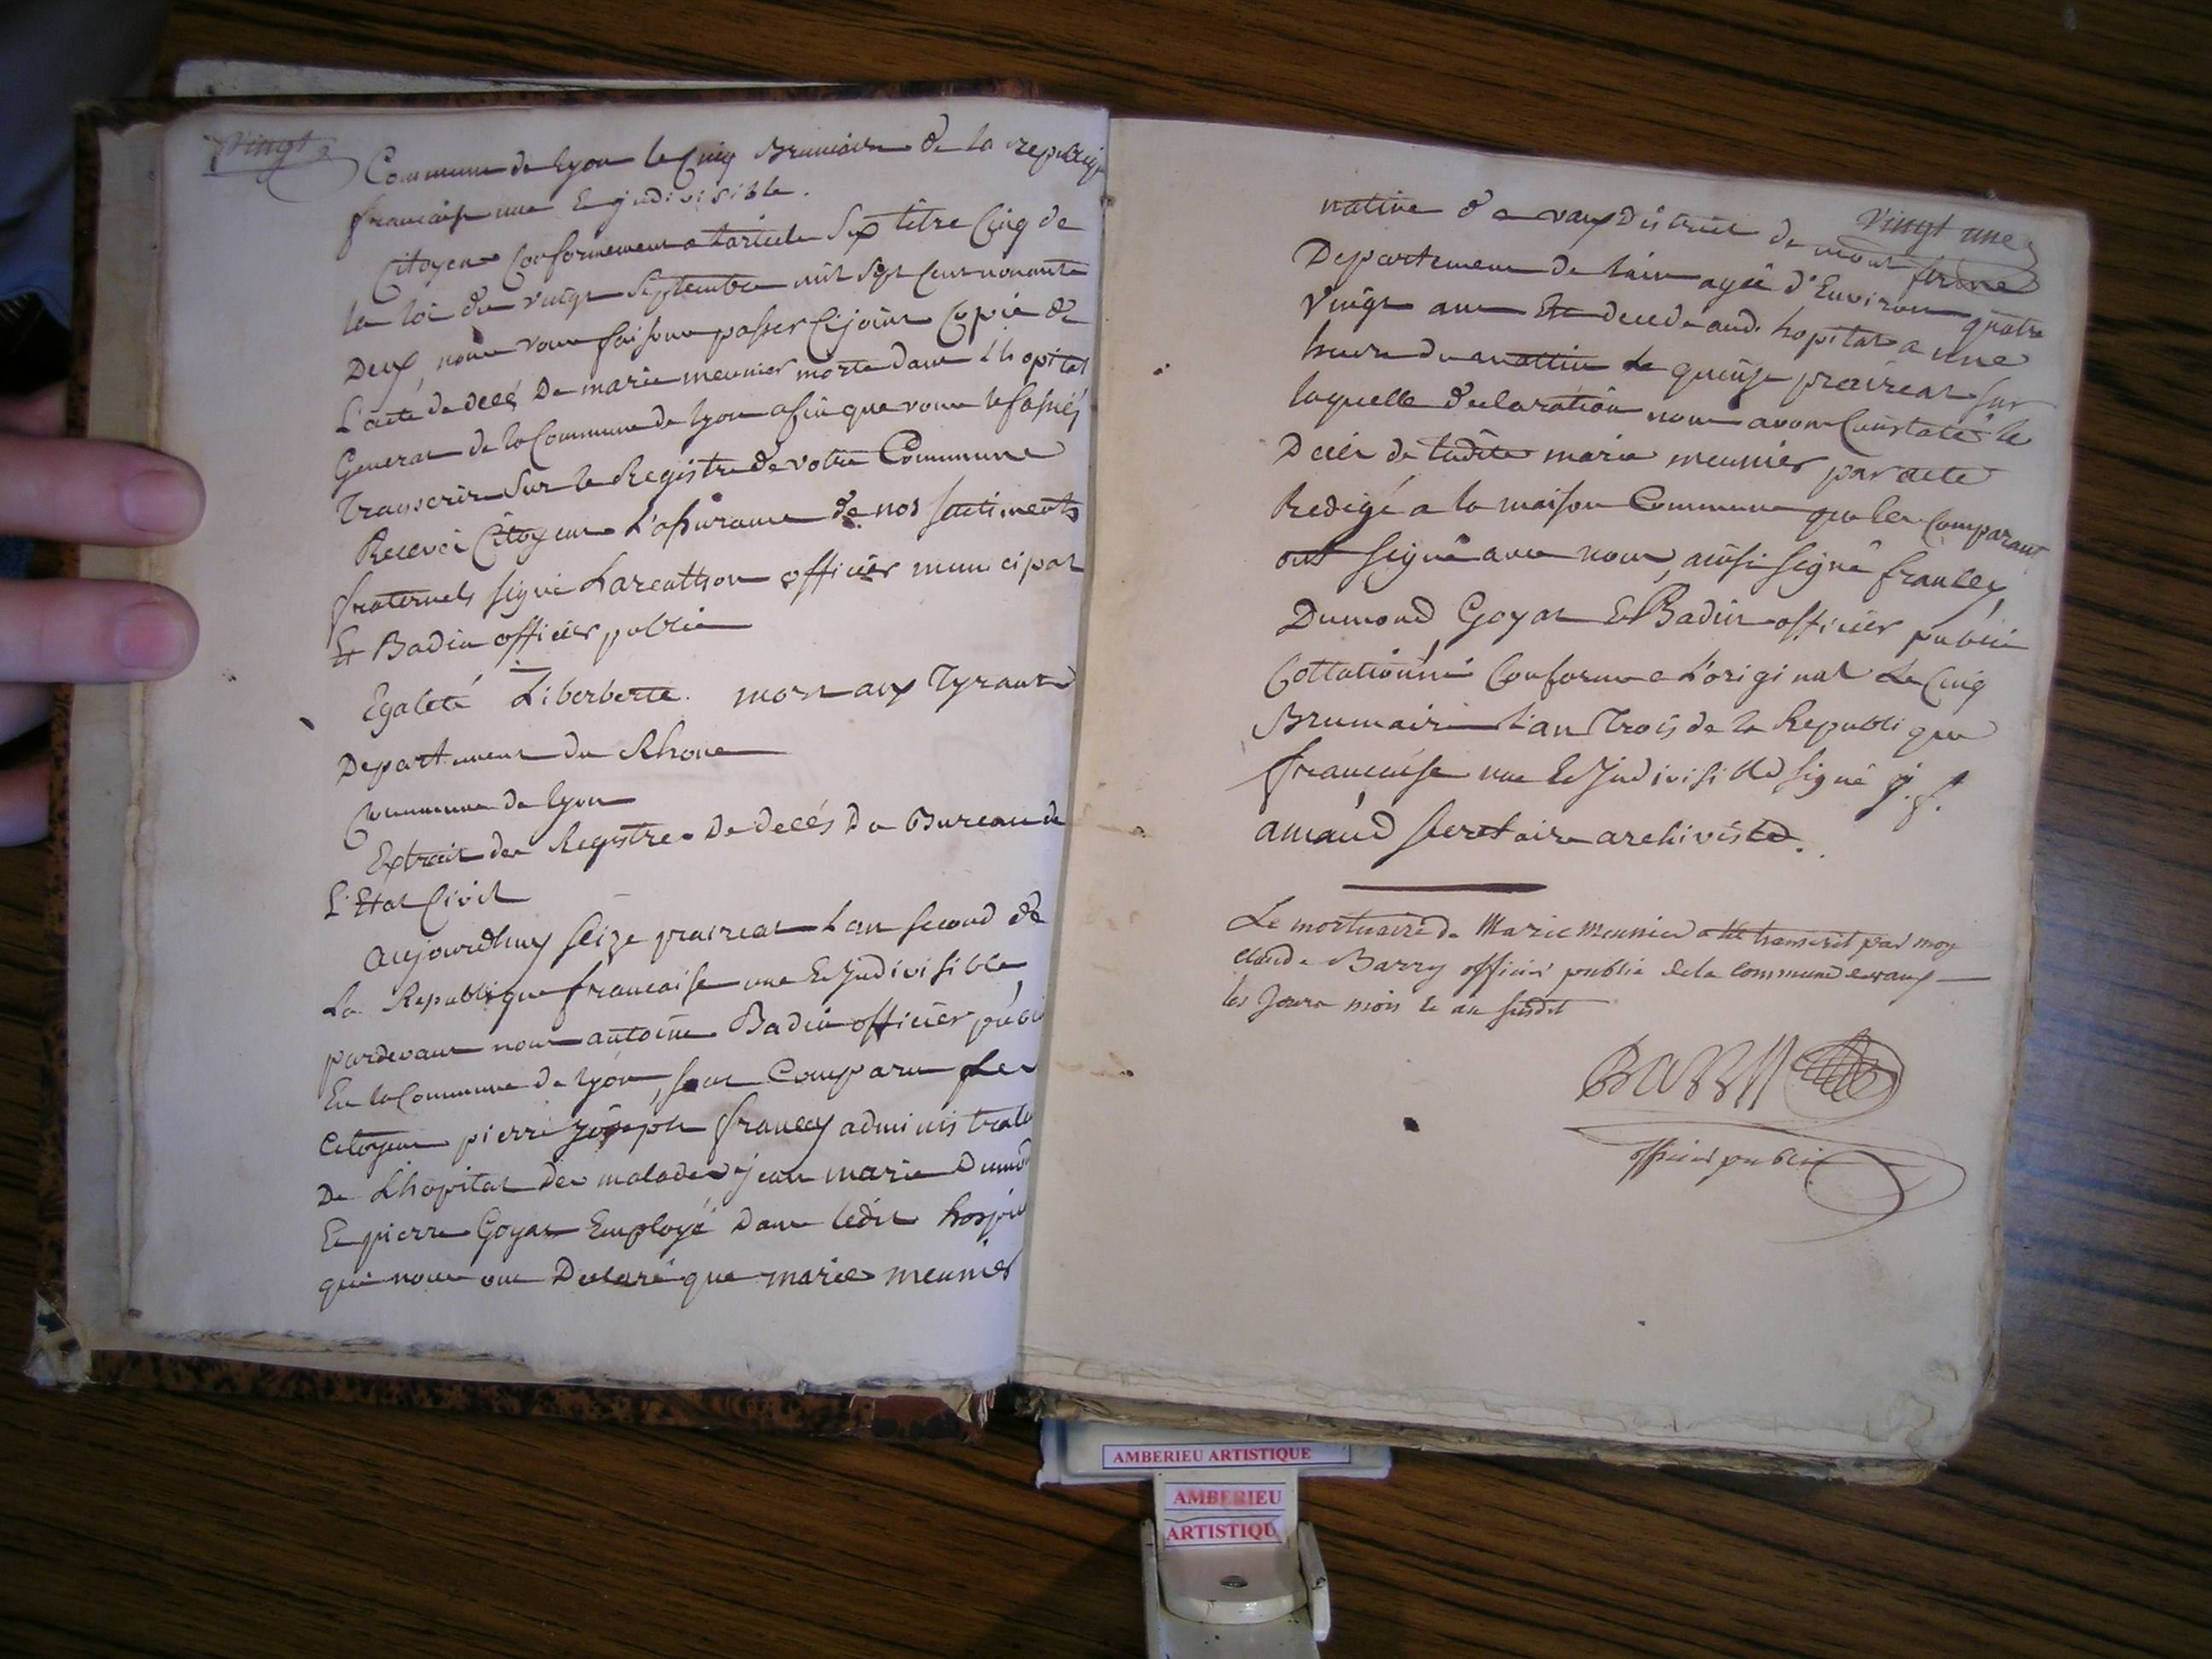 Vingt
Commune de Lyon le Cinq Brumaire de la republique
francaise une et jndivisible.
Citoyens Conformement a l'article Six titre Cinq de
la loi du vingt Septembre mil sept Cent nonante
Deux, nous vous faisons passer Cijoint Copie de
L'acte de decé De marie meunier morte dans Lhopital
General de la Commune de lyon afin que vous le fassiés
Transcrire Sur le Registre de votre Commune
Recevéz Citoyens L'assurance de nos sentiments
fraternels signé officier municipal
Et Badin officier public
Egaleté Liberberte. mort aux Tyrants
Departement du Rhone
Commune de Lyon
Extrait des Registres De decés Du Bureau de
L'Etat Civil
aujourdhuy seize prairéal Lan second de
La Republique francaise une Et Jndivisible,
pardevant nous antoine Badin officier public
En la Commune de Lyon, sont Comparu Les
Citoyens pierre Joseph francey administrate
De Lhopital des malades, jean marie Dumo
Et pierre Goyat Employé Dans ledit hospi
qui nous ont Declaré que marie meunier
Vingt une
native de vaux District de mont ferme
Departement de Lain agée d'Environ quatre
Vingt ans Est decedé aud. hopital a une
heure du mattin Le quinze prairéal sur
laquelle declaration nous avons Constaté le
Décès de ladite marie meunier par acte
Redigé a la maison Commune que les Comparant
ont signé avec nous, ainsi signé francey,
Dumond, Goyat Et Badin officier public
Collationné Conforme a L'original Le Cinq
Brumaire l'an Trois de la Republique
francaise une Et Jndivisible signé j. f.
amaud secretaire archiviste.
Le mortuaire de Marie Meunier a été transcrit par moy
claude Barry officier public de la commune de vaux
les Jours mois et an susdit
Barry
officier public
AMBERIEU ARTISTIQUE
AMBERIEU
ARTISTIQU